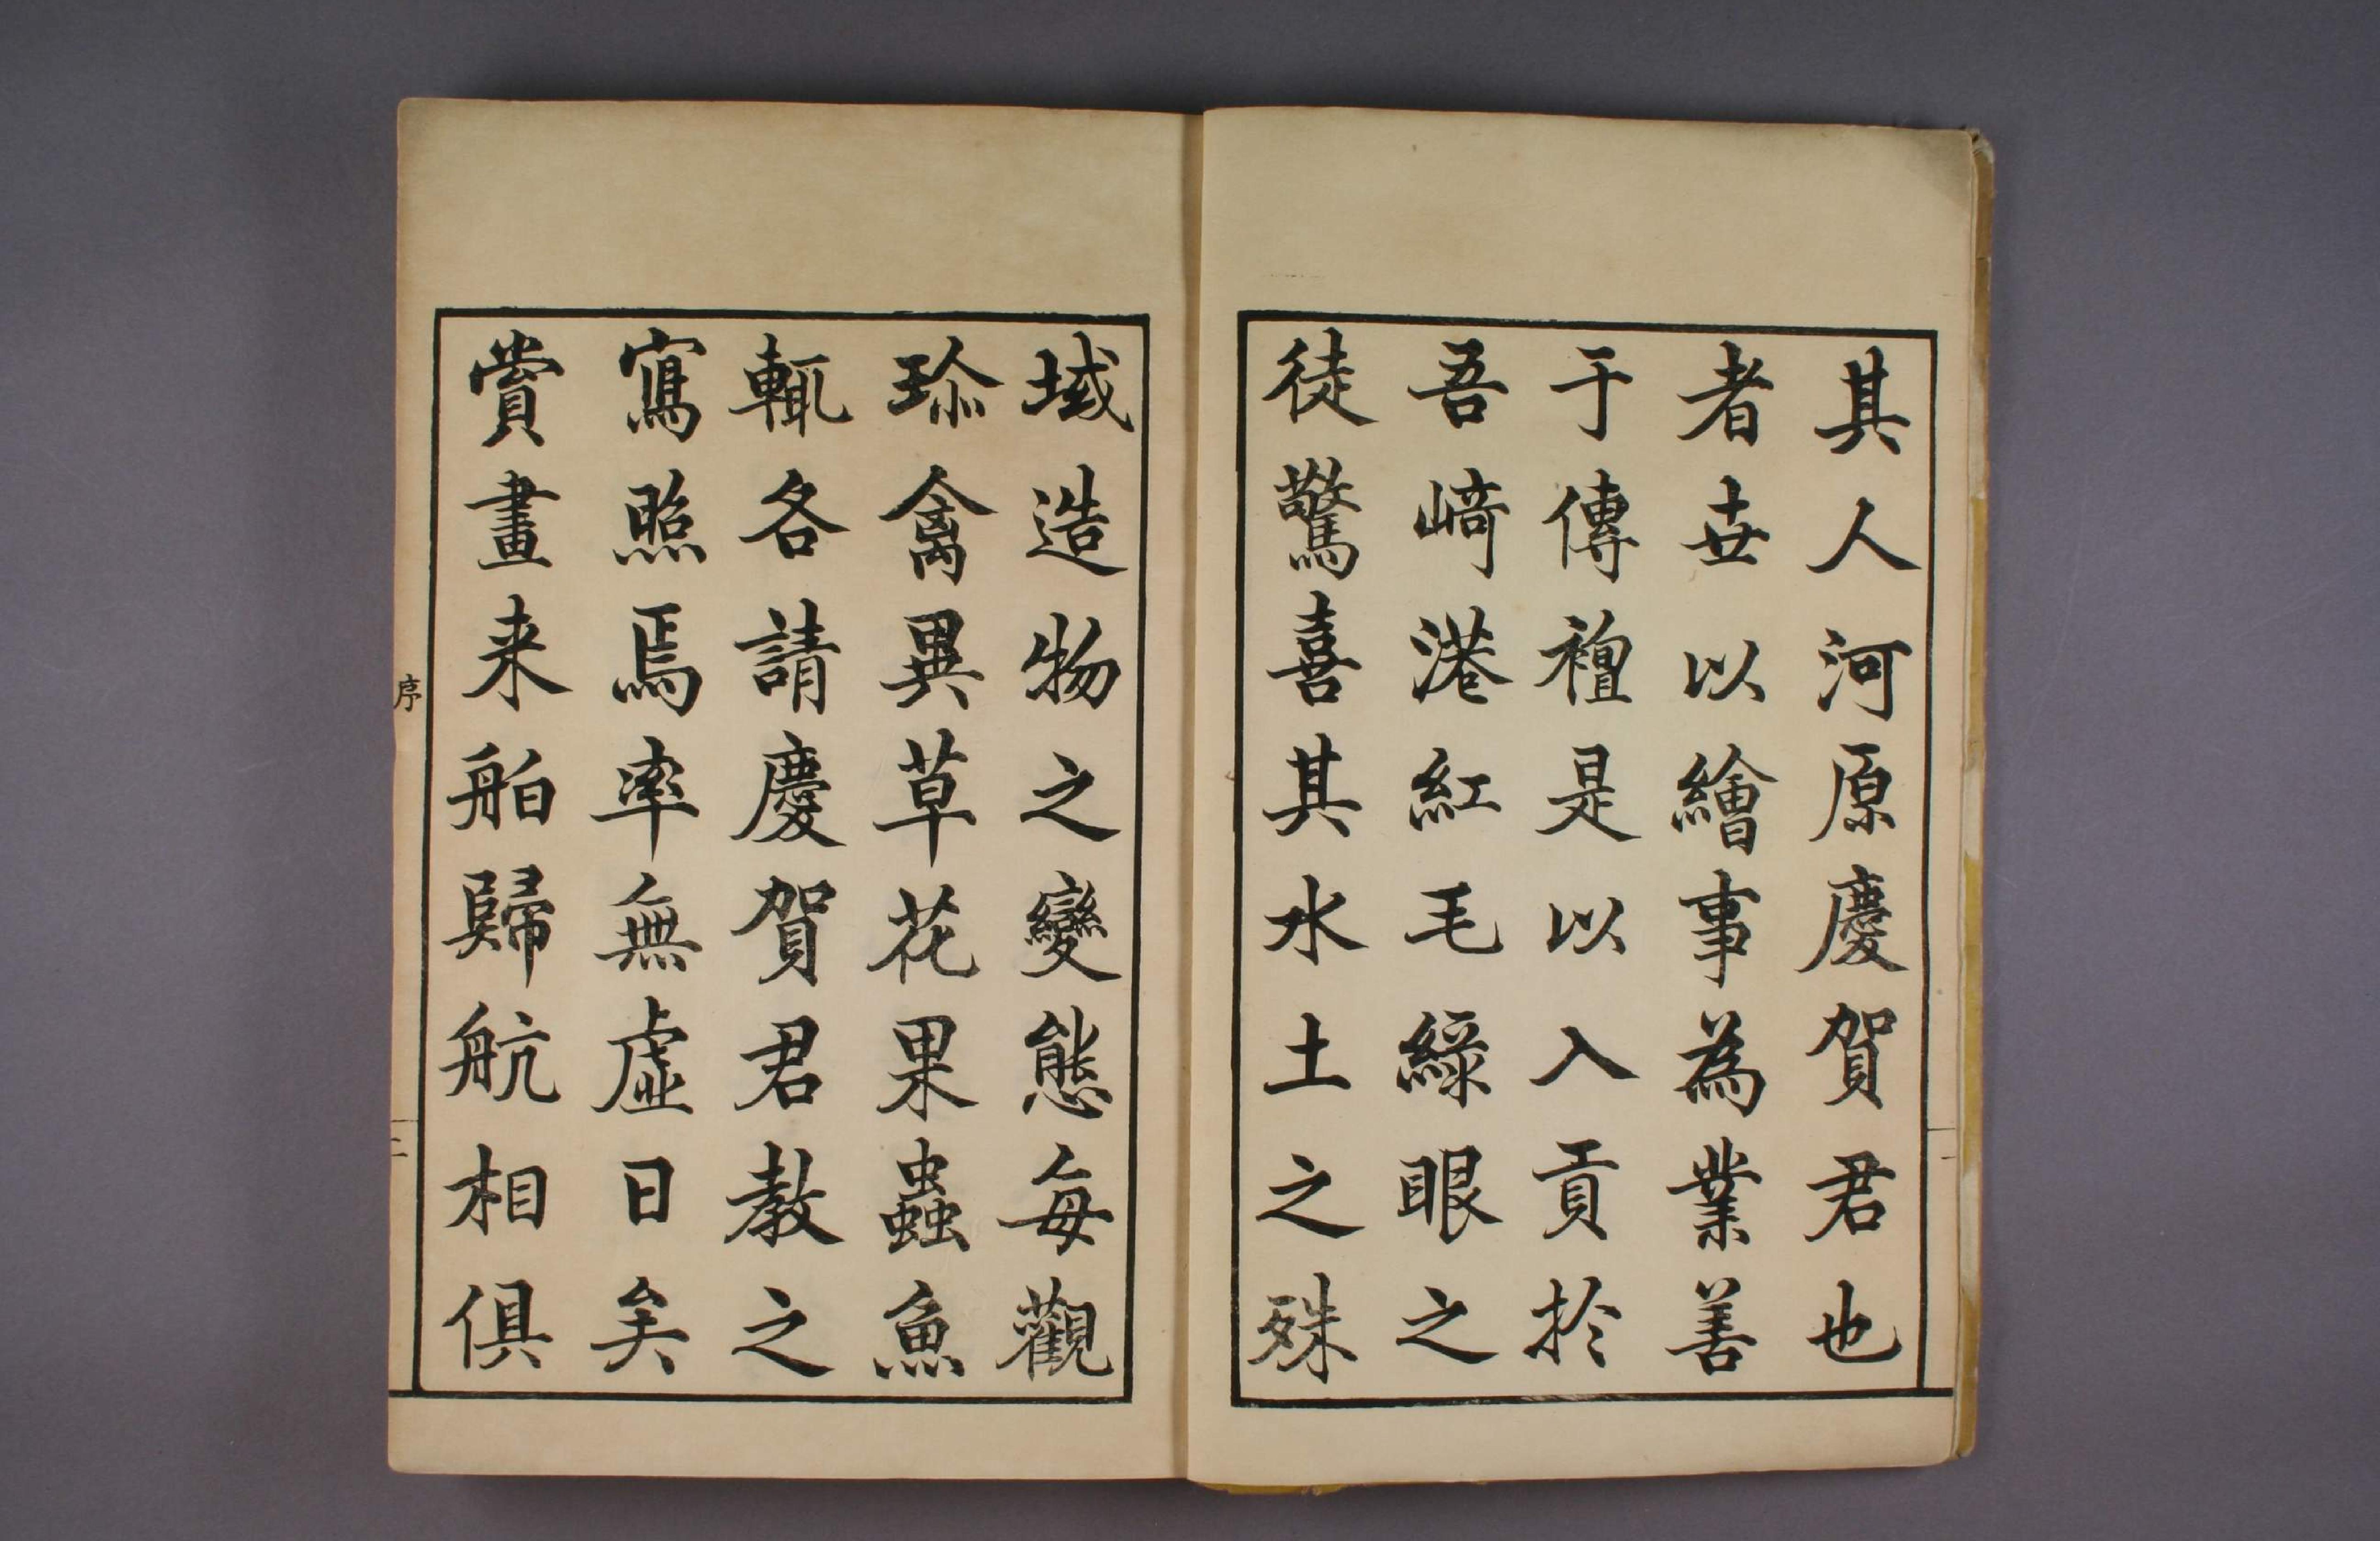 其人河原慶賀君也
者世以繪事為業善
于傳神是以入貢於
吾﨑港紅毛綠眼之
徒驚喜其水土之殊
域造物之變態每觀
珎禽異草花果蟲魚
輒各請慶賀君教之
寫照焉率無虛日矣
賞畫来舶歸航相俱
序
二